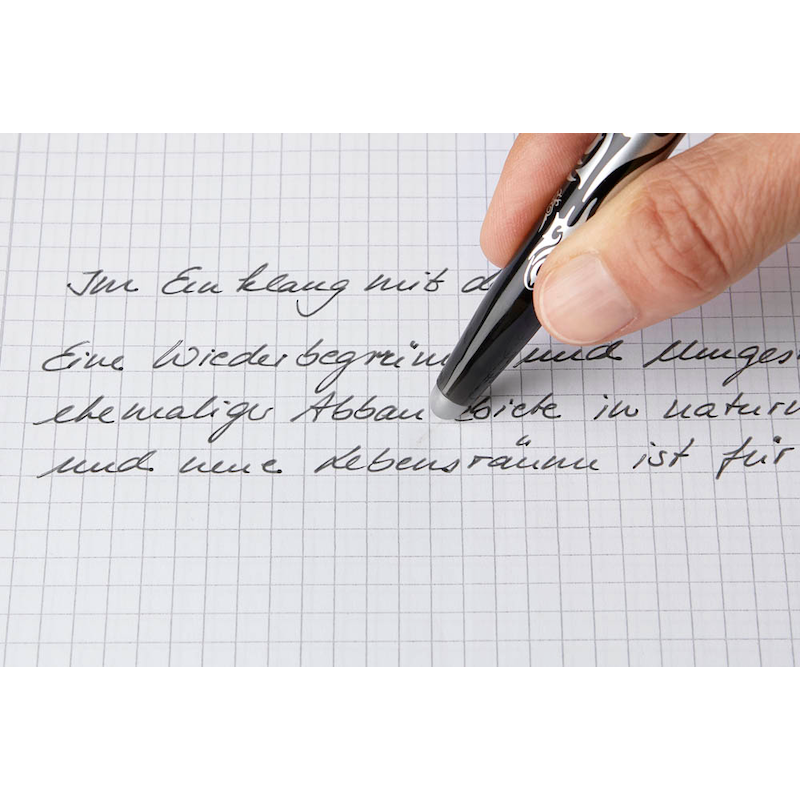 Im Einklang mit d
Eine Wiederbegrün und Umges
ehemaliger Abbau ebiete in naturn
und neue Lebensräume ist für